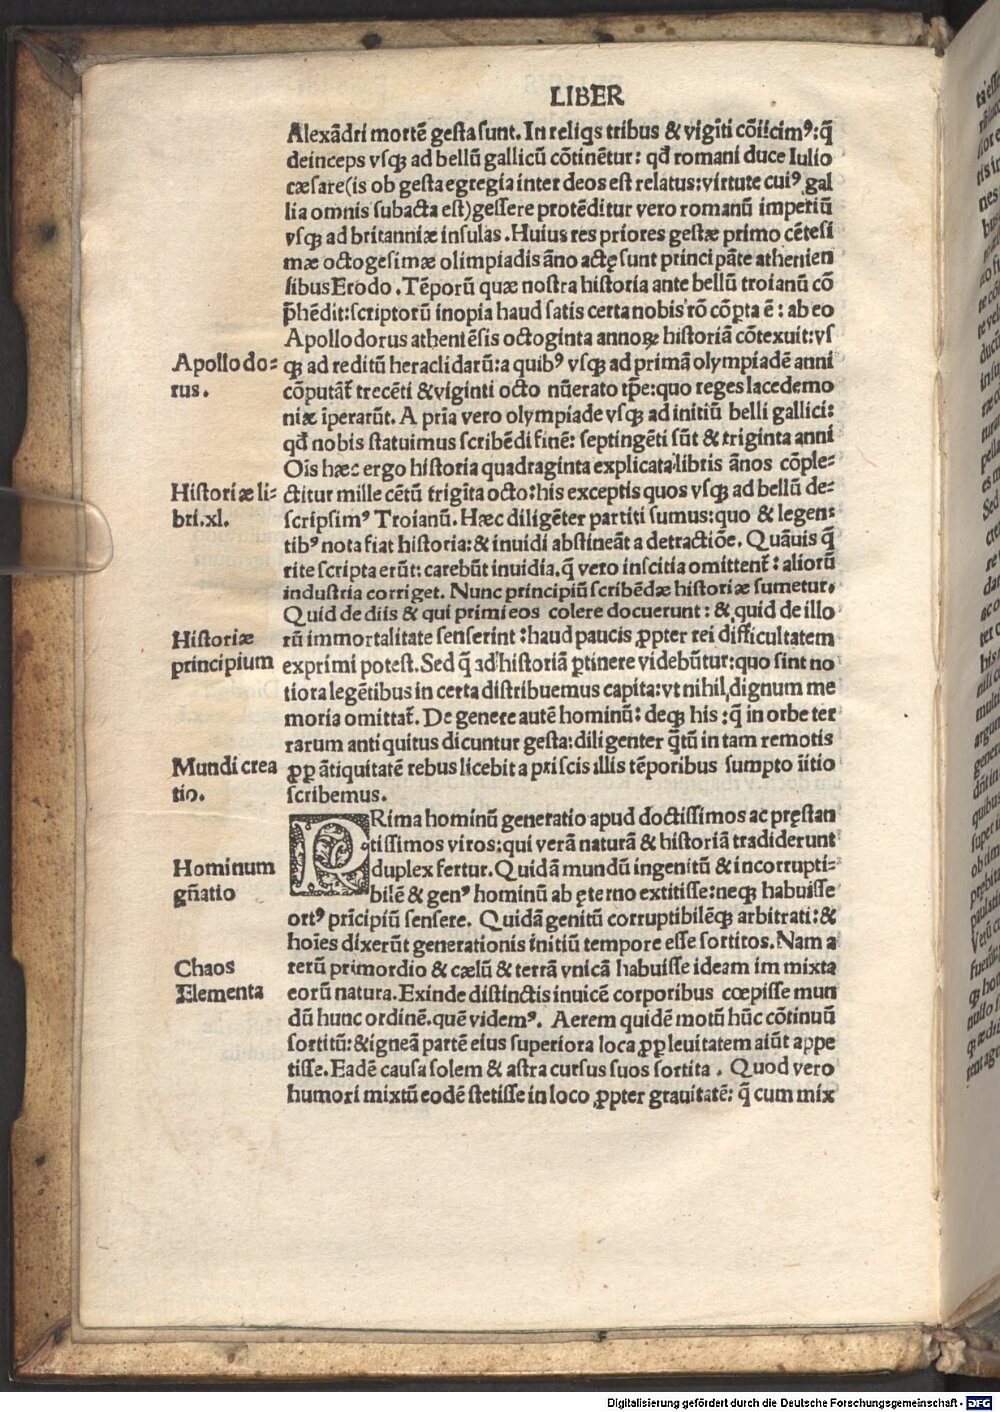 LIBER
Alexãdri mortẽ gesta sunt. In reliqs tribus & vigĩti cõiicimꝰ: q̃
deinceps vsqꝫ ad bellũ gallicũ cõtinẽtur: qđ romani duce Iulio
cæsare(is ob gesta egregia inter deos est relatus: virtute cuiꝰ gal
lia omnis subacta est)gessere protẽditur vero romanũ imperiũ
vsqꝫ ad britanniæ insulas. Huius res priores gestæ primo cẽtesi
mæ octogesimæ olimpiadis ãno actę sunt principãte athenien
sibus Erodo. Tẽporũ quæ nostra historia ante bellũ troianũ cõ
p̃hẽdit: scriptorũ inopia haud satis certa nobis rõ cõpta ẽ: ab eo
Apollodorus atheniẽsis octoginta annoꝝ historiã cõtexuit: vs
Apollodo=
rus.
qꝫ ad reditũ heraclidarũ: a quibꝰ vsqꝫ ad primã olympiadẽ anni
cõputãt̃ trecẽti & viginti octo nũerato tp̃e: quo reges lacedemo
niæ ĩperarũt. A pria vero olympiade vsqꝫ ad initiũ belli gallici:
qđ nobis statuimus scribẽdi finẽ: septingẽti sũt & triginta anni
Ois hæc ergo historia quadraginta explicata libris ãnos cõple=
Historiæ li=
bri.xl.
ctitur mille cẽtũ trigĩta octo: his exceptis quos vsqꝫ ad bellũ de=
scripsimꝰ Troianũ. Hæc diligẽter partiti sumus: quo & legen=
tibꝰ nota fiat historia: & inuidi abstineãt a detractiõe. Quãuis q̃
rite scripta erũt: carebũt inuidia. q̃ vero inscitia omittent̃: aliorũ
industria corriget. Nunc principiũ scribẽdæ historiæ sumetur.
Quid de diis & qui primi eos colere docuerunt: & quid de illo
Historiæ
principium
rũ immortalitate senserint: haud paucis ꝓpter rei difficultatem
exprimi potest. Sed q̃ ad historiã ꝑtinere videbũtur: quo sint no
tiora legẽtibus in certa distribuemus capita: vt nihil dignum me
moria omittat̃. De genere autẽ hominũ: deqꝫ his: q̃ in orbe ter
rarum antiquitus dicuntur gesta: diligenter q̃tũ in tam remotis
Mundi crea
tio.
ꝓp ãtiquitatẽ rebus licebit a priscis illis tẽporibus sumpto ĩitio
scribemus.
PRima hominũ generatio apud doctissimos ac pręstan
tissimos viros: qui verã naturã & historiã tradiderunt
Hominum
gñatio
duplex fertur. Quidã mundũ ingenitũ & incorrupti=
bilẽ & genꝰ hominũ ab ęterno extitisse: neqꝫ habuisse
ortꝰ prĩcipiũ sensere. Quidã genitũ corruptibilẽqꝫ arbitrati: &
hoĩes dixerũt generationis initiũ tempore esse sortitos. Nam a
Chaos
Elementa
rerũ primordio & cælũ & terrã vnicã habuisse ideam im mixta
eorũ natura. Exinde distinctis inuicẽ corporibus cœpisse mun
dũ hunc ordinẽ. quẽ videmꝰ. Aerem quidẽ motũ hũc cõtinuũ
sortitũ: & igneã partẽ eius superiora loca ꝓp leuitatem aiũt appe
tisse. Eadẽ causa solem & astra cursus suos sortita. Quod vero
humori mixtũ eodẽ stetisse in loco ꝓpter grauitatẽ: q̃ cum mix
Digitalisierung gefördert durch die Deutsche Forschungsgemeinschaft - DFG